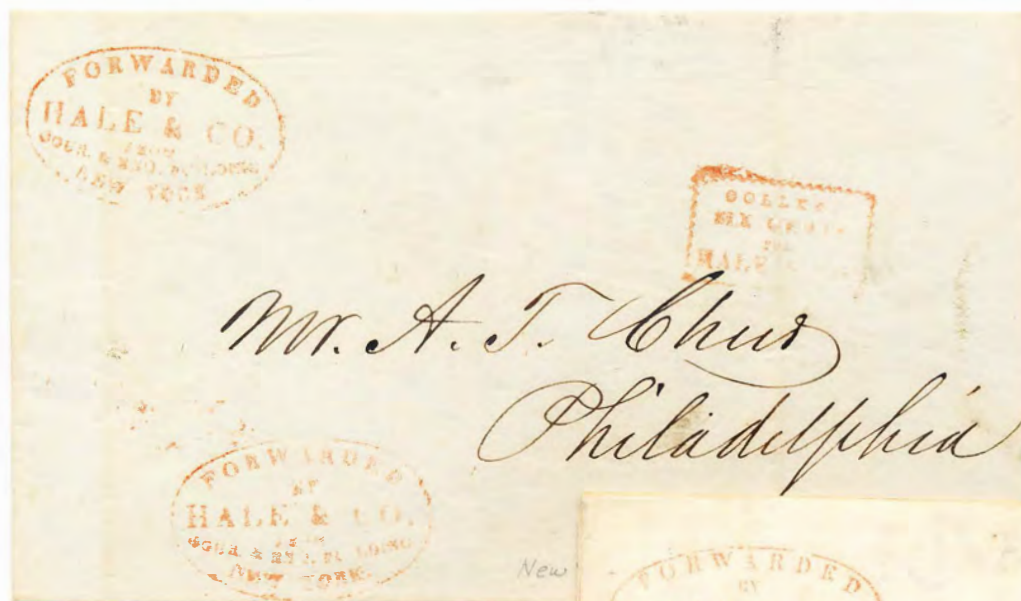 FORWARDED
BY
HALE & CO.
FROM
COUR. & ENQ. BUILDING
NEW YORK
COLLECT
SIX CENTS
FOR
HALE
Mr. A. T. Chur
Philadelphia
FORWARDED
BY
HALE & CO.
FROM
COUR. & ENQ. BUILDING
NEW YORK.
New
FORWARDED
BY